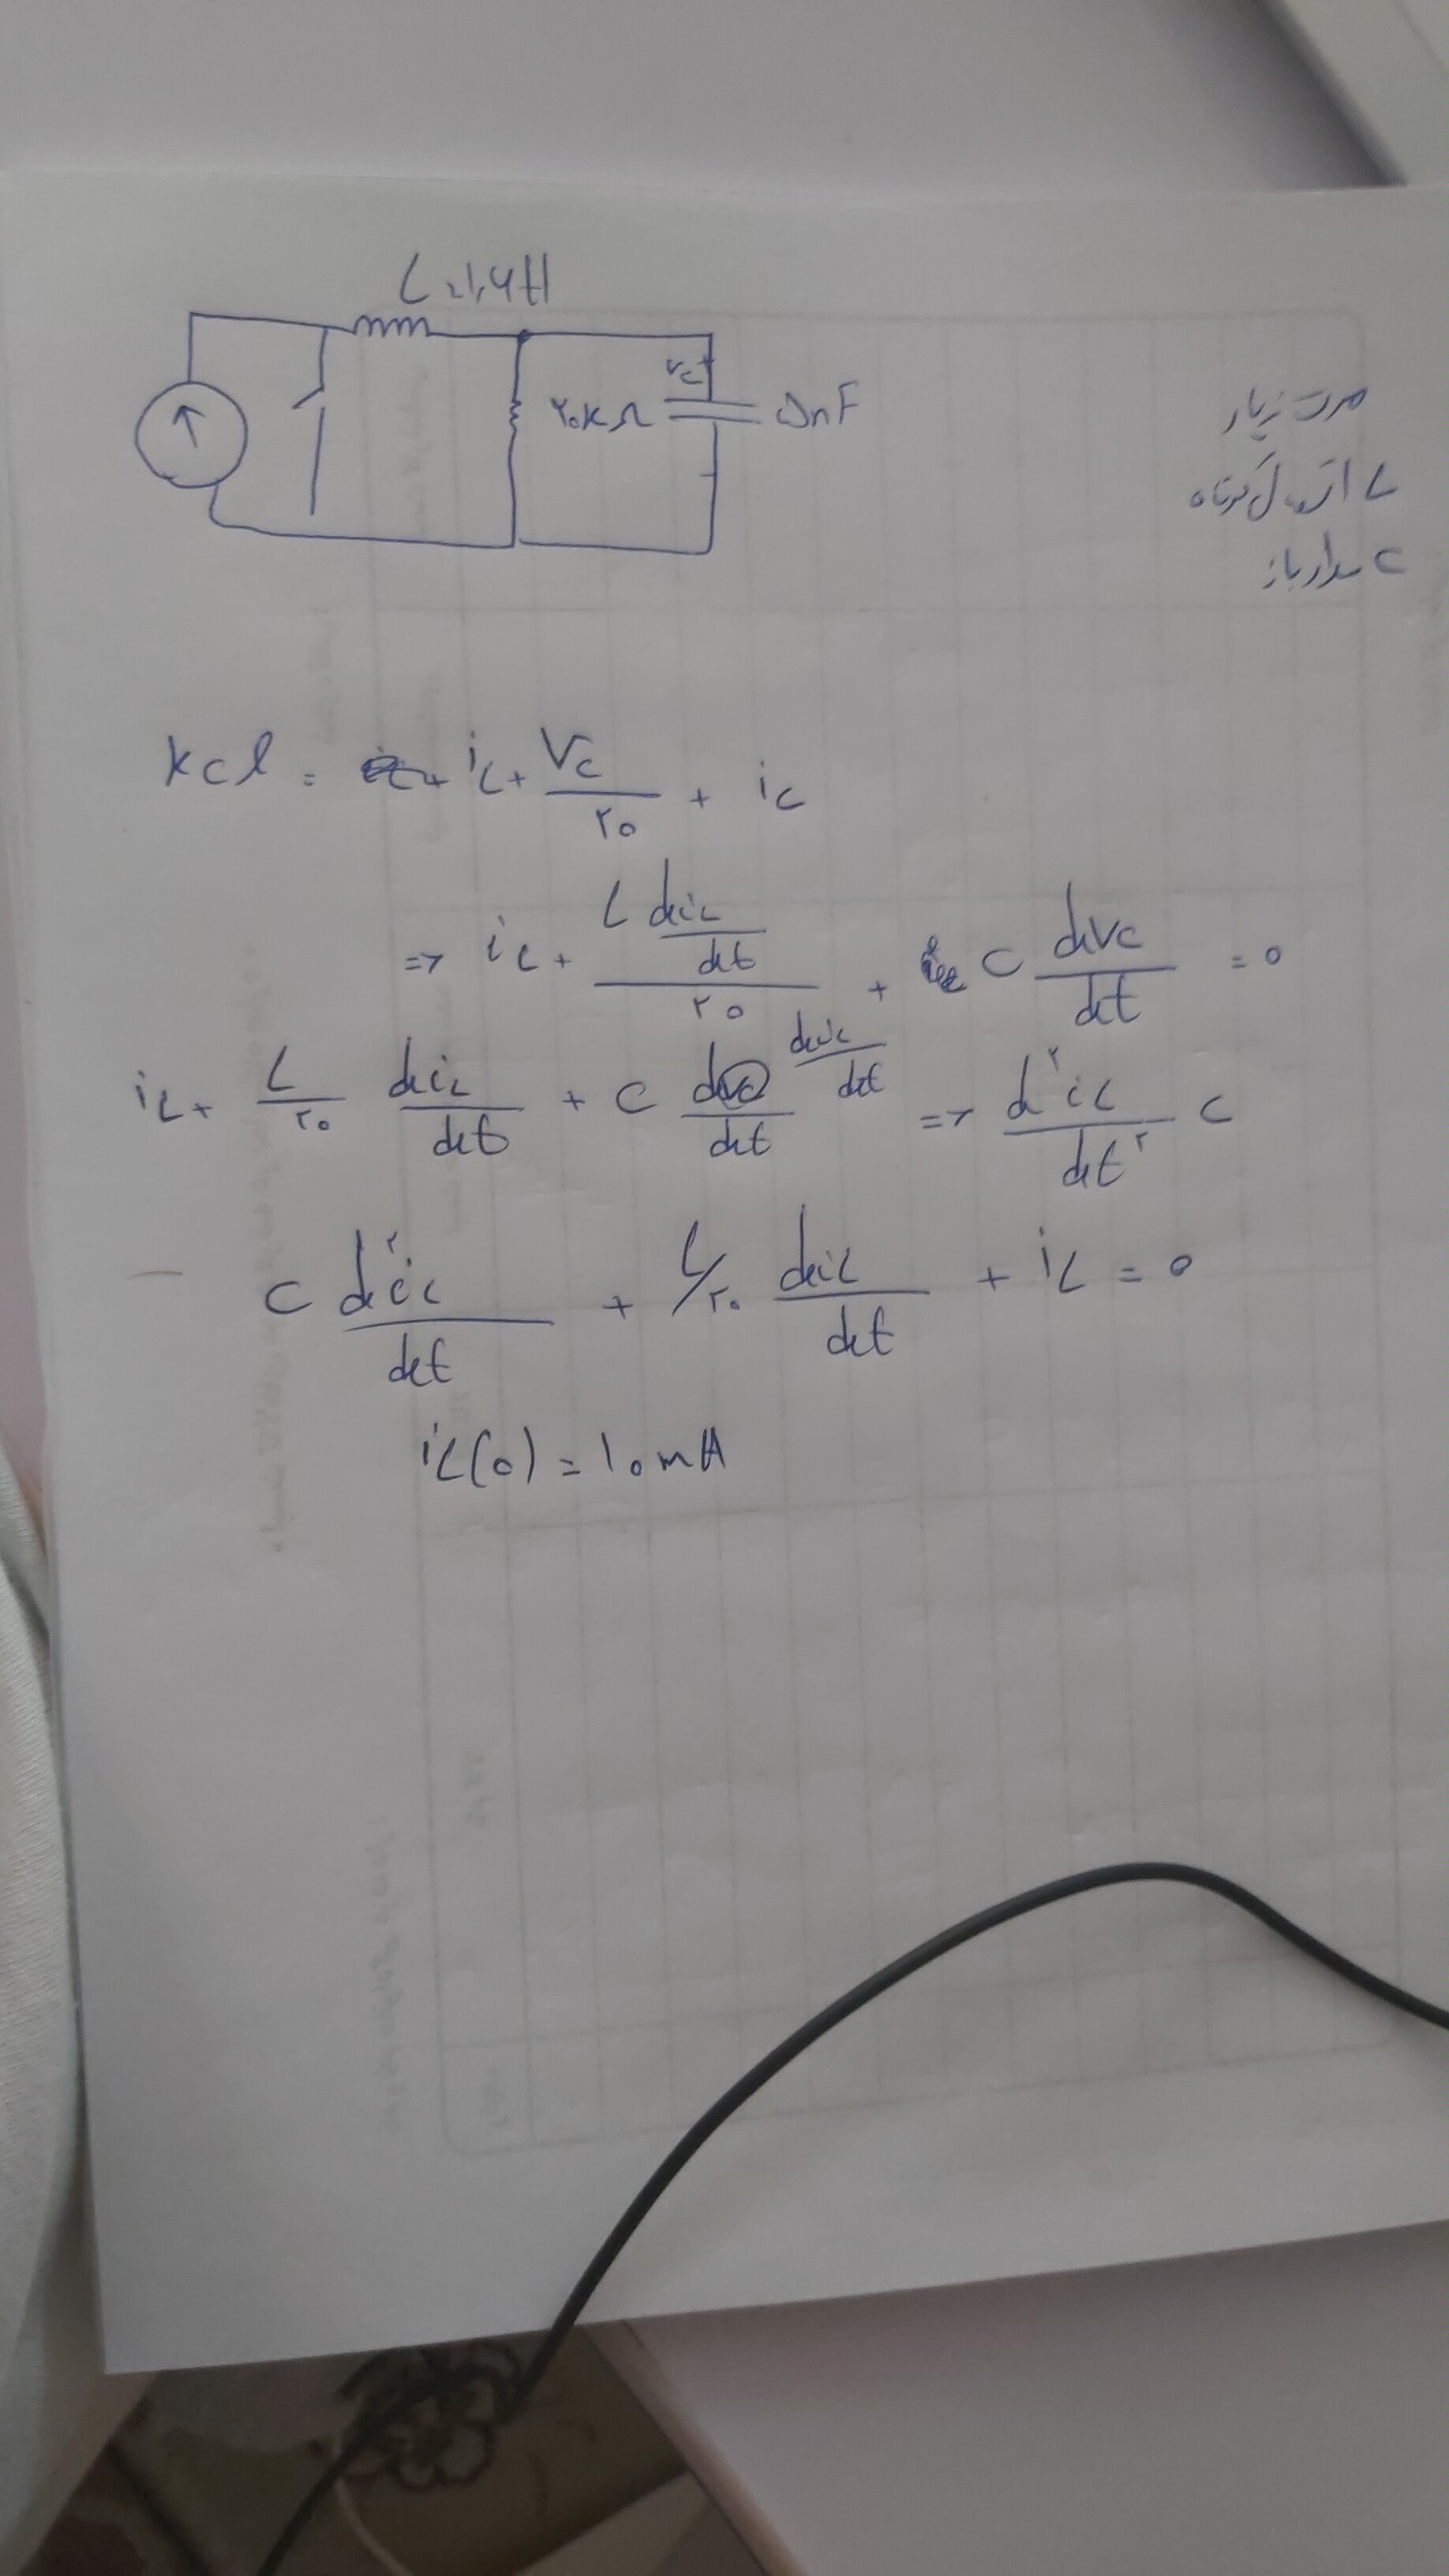 L = ۱,۶H
Vc +
۲۰kΩ
۵nF
مدت زیاد
L اتصال کوتاه
C مدار باز
KCl = iL + Vc/۲۰ + ic
=> iL + (L diL/dt)/۲۰ + C dVc/dt = ۰
iL + L/۲۰ diL/dt + C dVc/dt diL/dt => d²iL/dt² C
C d²iL/dt + L/۲۰ diL/dt + iL = ۰
iL(۰) = ۱۰mA